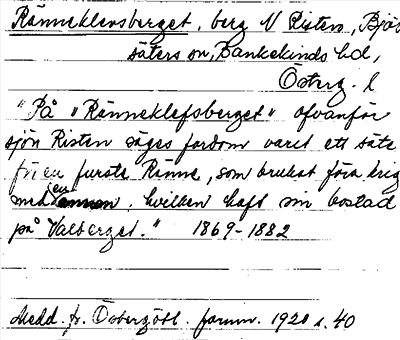 Ränneklevsberget, berg N Risten, Björ
säters sn, Bankekinds hd,
Österg. l
"På "Ränneklefsberget" ofvanför
sjön Risten säges fordom varit ett säte
för en furste Ränne, som brukat föra krig
med en annan, hvilken haft sin bostad
på Valberget." 1869-1882
Medd. fr. Östergötl. fornm. 1920 s. 40